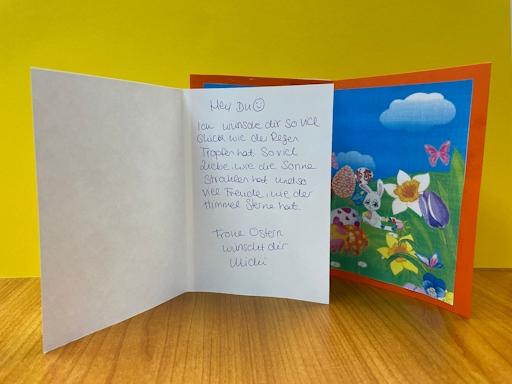 Hey Du ☺
Ich wünsche dir so viel
Glück wie der Regen
Tropfen hat. So viel
Liebe, wie die Sonne
Strahlen hat und so
viel Freude, wie der
Himmel Sterne hat.
Frohe Ostern
wünscht dir